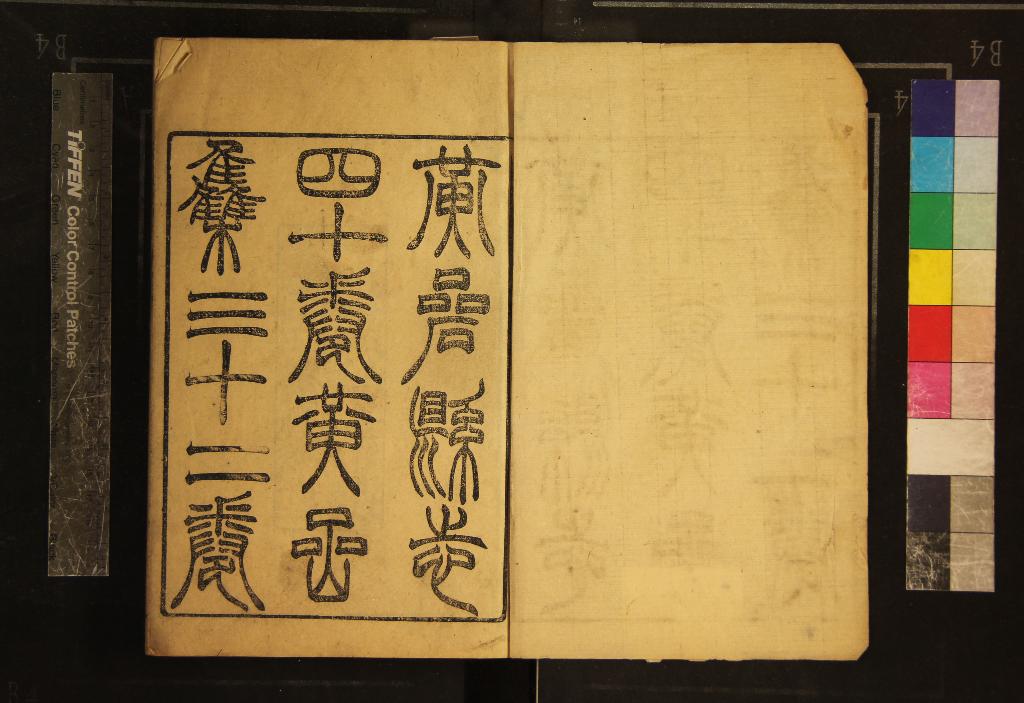 黃嵒縣志
四十卷黃嵒
集三十二卷
TIFFEN Color Control Patches
B4
B4